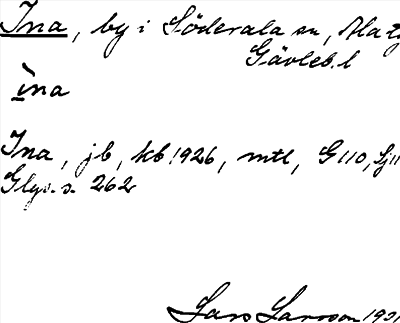 Ina, by i Söderala sn, Ala
Gävleb. l
ìna
Ina, jb, kb 1926, mtl, G 110, Sj 11
Glgs. s. 262
Lars Larsson 1931